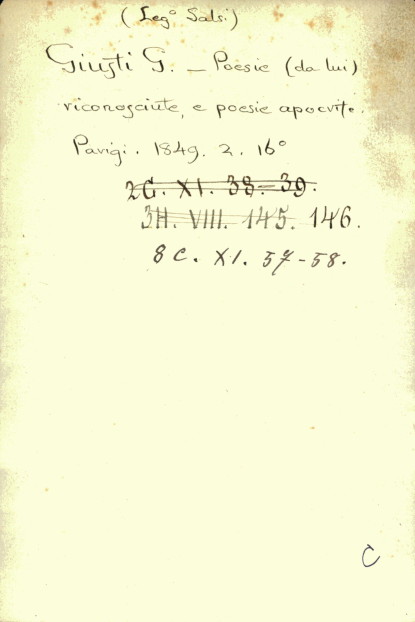 (Leg° Salsi)
Giusti G. — Poesie (da lui)
riconosciute, e poesie apocrife.
Parigi. 1849. 2. 16°
2G. XI. 38-39.
3H. VIII. 145. 146.
8 C. XI. 57-58.
C